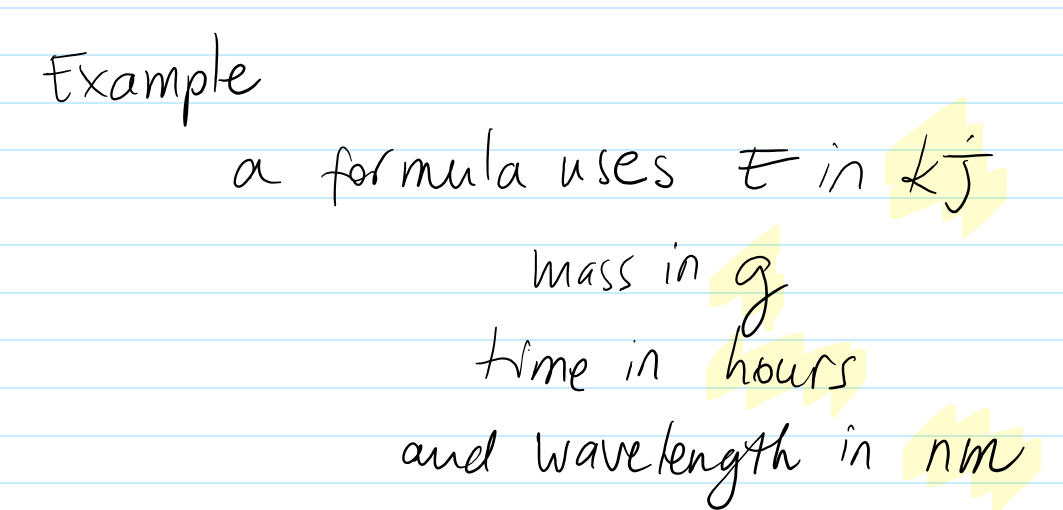 Example
a formula uses E in kj
mass in g
time in hours
and wavelength in nm